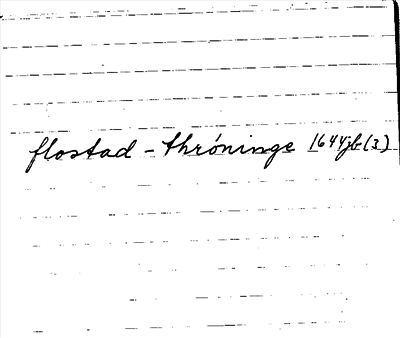 flostad - thróninge 1644jb(3)